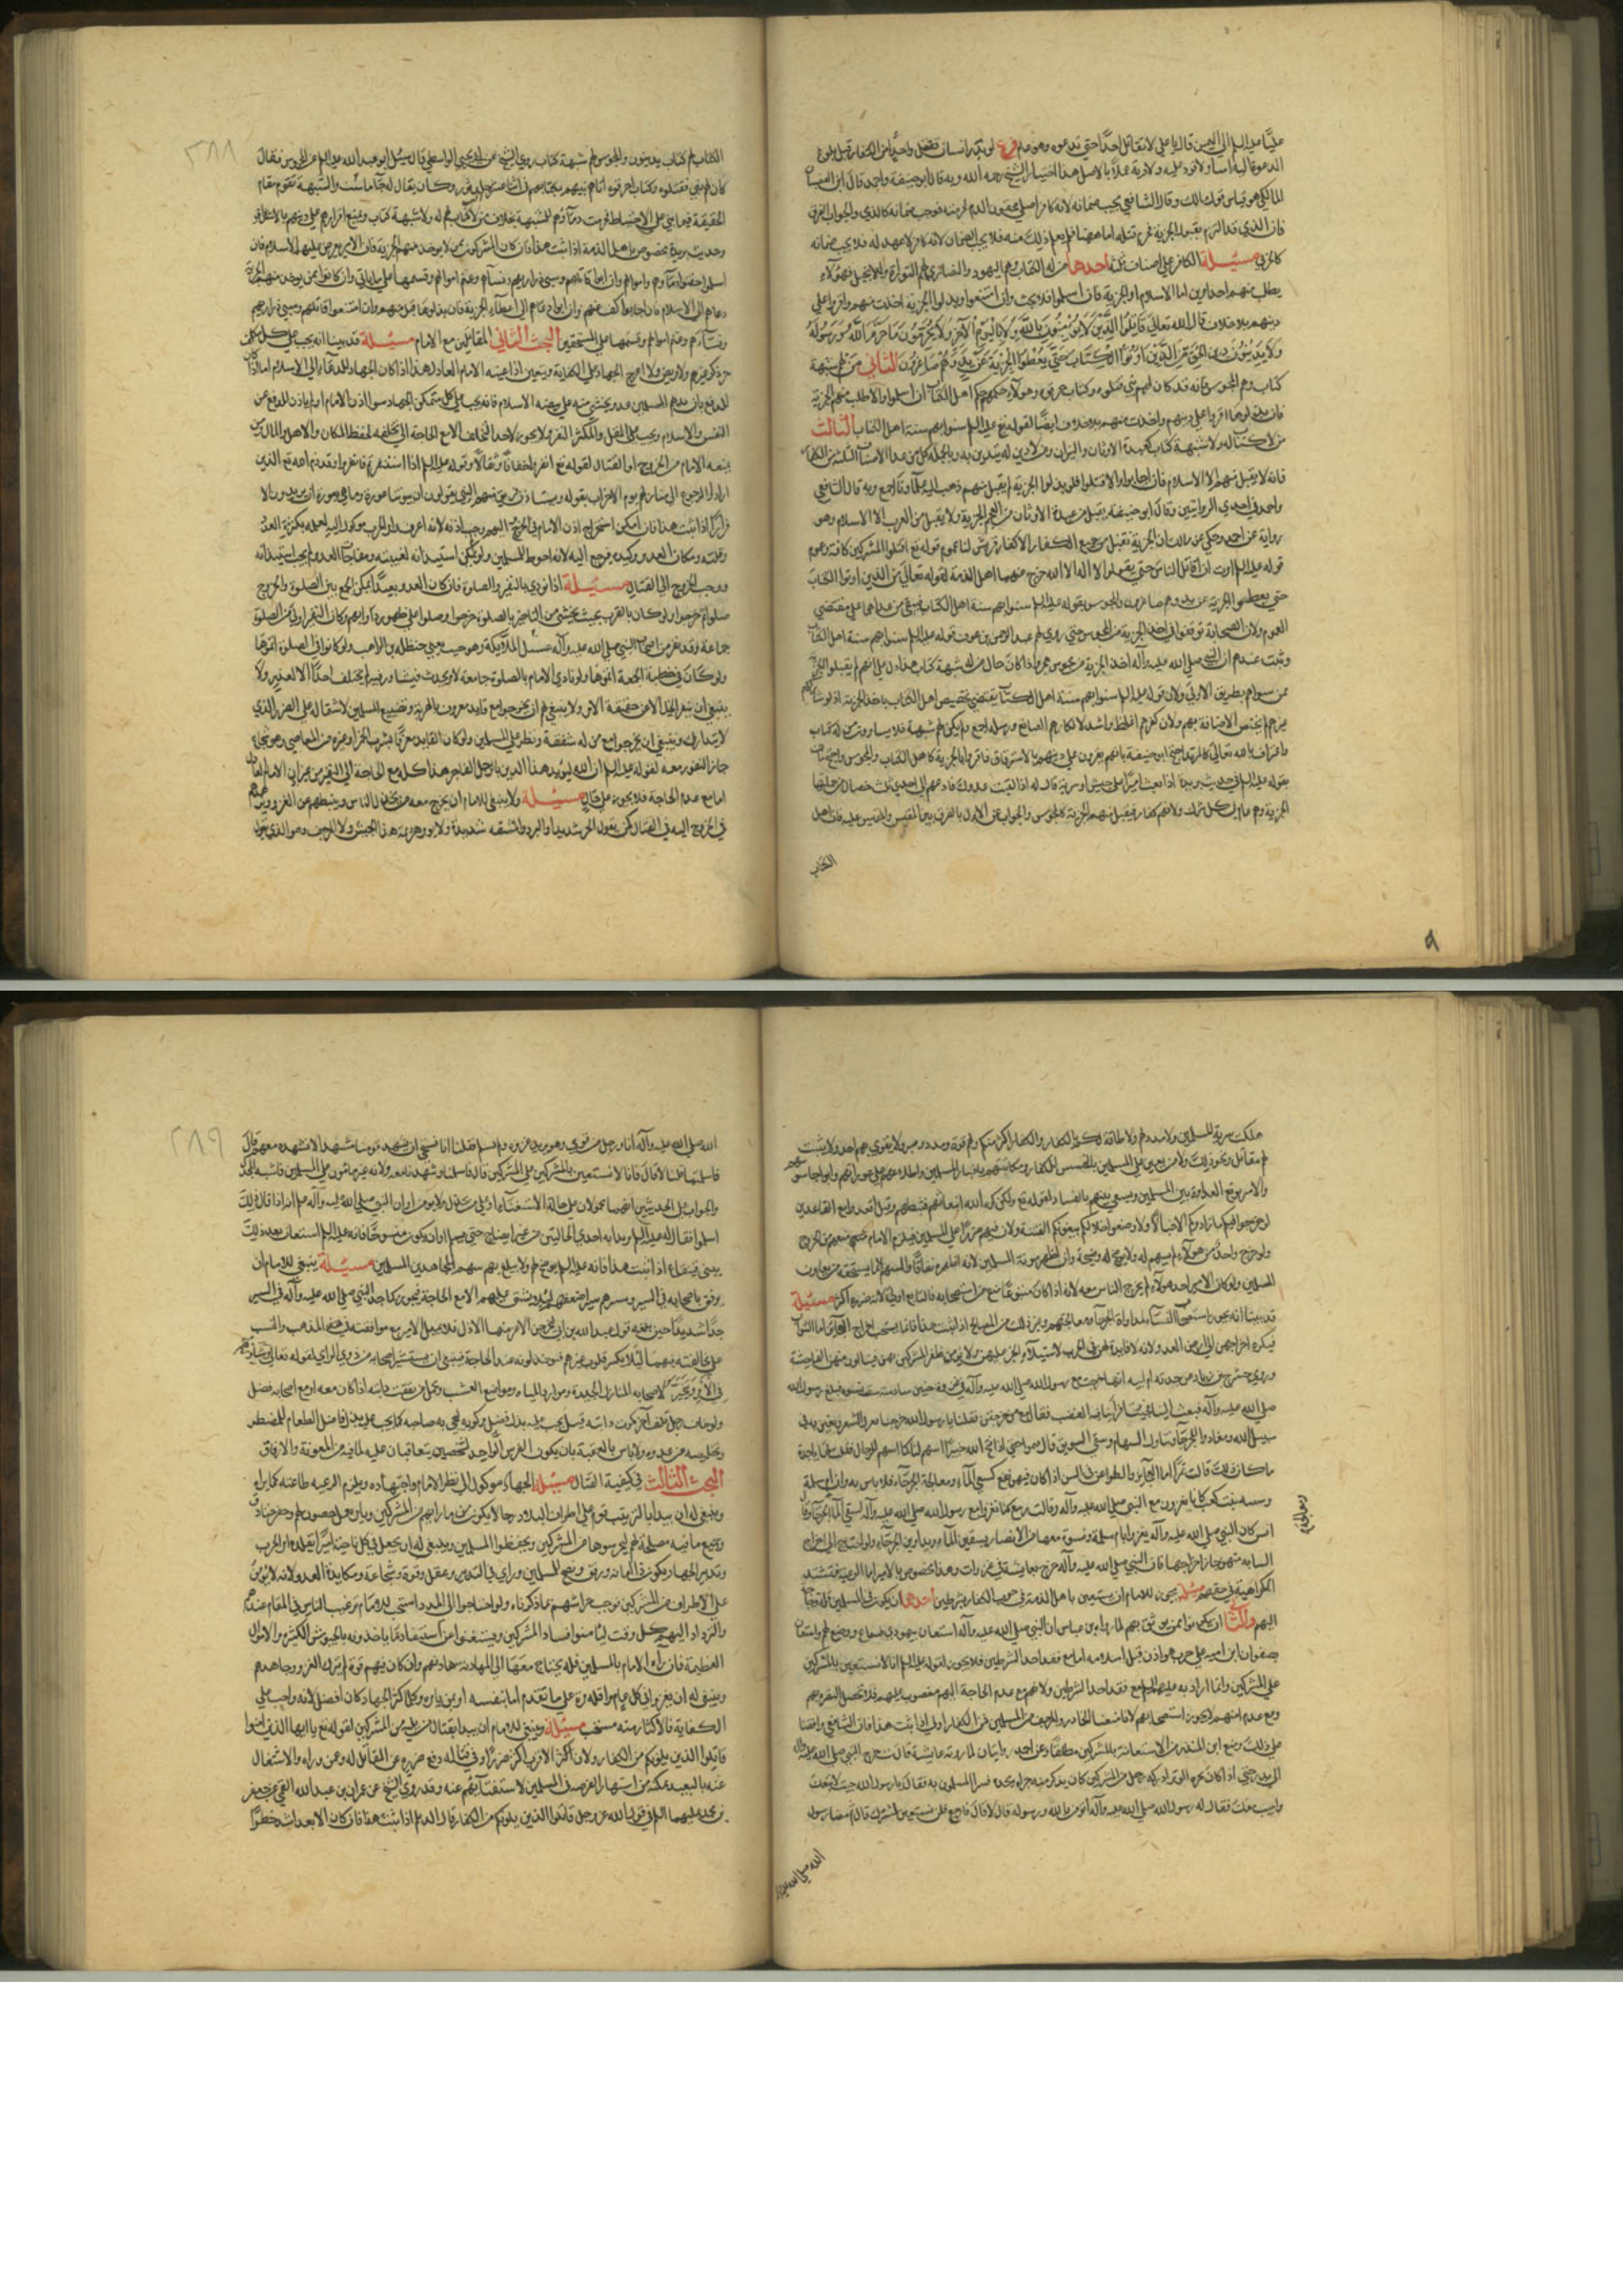 عليا عليه السلم الى اليمن قال يا علي لا تقاتل احدا حتى تدعوه وهو عام فرع لو بدر انسان فقتل واحدا من الكفار قبل بلوغ
الدعوة اليه اساء ولا قود عليه ولا دية عملا بالاصل هذا اختيار الشيخ رحمه الله وبه قال ابو حنيفة واحمد قال ابن
المالكي هو قياس قول مالك وقال الشافعي يجب ضمانه لانه كافر اصلي محقون الدم لحرمته فوجب ضمانه كالذمي والجواب الفرق
فان الذمي قد التزم بقبول الجزية فحرم قتله اما هنا فلم يعلم ذلك منه فلا يجب الضمان لانه كافر لا عهد له فلا يجب ضمانه
كالحربي مسئلة الكفار على اصناف ثلثة احدها من له كتاب وهم اليهود والنصارى لهم التورية والانجيل فهولاء
يطلب منهم احد امرين اما الاسلام او الجزية فان اسلموا فلا بحث وان امتنعوا وبذلوا الجزية اخذت منهم واقروا على
دينهم بلا خلاف قال الله تعالى قاتلوا الذين لا يؤمنون بالله ولا باليوم الآخر ولا يحرمون ما حرم الله ورسوله
ولا يدينون دين الحق من الذين اوتوا الكتاب حتى يعطوا الجزية عن يد وهم صاغرون الثاني من لهم شبهة
كتاب وهم المجوس فانه قد كان لهم نبي قتلوه وكتاب حرقوه وهولاء حكمهم حكم اهل الكتاب ان اسلموا والا طلب منهم الجزية
فان بذلوها اقروا على دينهم واخذت منهم بلا خلاف ايضا لقوله عليه السلم سنوا بهم سنة اهل الكتاب الثالث
من لا كتاب له ولا شبهة كتاب كعبدة الاوثان والنيران ومن لا دين له يتدين به وبالجملة كل من عدا الاصناف الثلثة من الكفار
فانه لا يقبل منهم الا الاسلام فان اجابوا والا قتلوا فلو بذلوا الجزية لم يقبل منهم ذهب اليه علماؤنا اجمع وبه قال الشافعي
واحمد في احدى الروايتين وقال ابو حنيفة يقبل من عبدة الاوثان من العجم الجزية ولا يقبل من العرب الا الاسلام وهو
رواية عن احمد وحكي عن مالك ان الجزية تقبل من جميع الكفار الا كفار قريش لنا عموم قوله تع اقتلوا المشركين كافة وعموم
قوله عليه السلم امرت ان اقاتل الناس حتى يقولوا لا اله الا الله خرج منهما اهل الذمة لقوله تعالى من الذين اوتوا الكتاب
حتى يعطوا الجزية عن يد وهم صاغرون والمجوس بقوله عليه السلم سنوا بهم سنة اهل الكتاب فبقي من عداهما على مقتضى
العموم ولان الصحابة توقفوا في اخذ الجزية من المجوس حتى روى لهم عبد الرحمن بن عوف قوله عليه السلم سنوا بهم سنة اهل الكتاب
وثبت عندهم ان النبي صلى الله عليه وآله اخذ الجزية من مجوس هجر واذا كان حال من له شبهة كتاب هذا دل على انهم لم يقبلوا الجزية
ممن سواهم بطريق الاولى ولان قوله عليه السلم سنوا بهم سنة اهل الكتاب يقتضي تخصيص اهل الكتاب باخذ الجزية اذ لو شاركهم
غيرهم لم يختص الاضافة بهم ولان كفرهم اغلظ واشد لانكارهم الصانع ورسله اجمع ولم يكن لهم شبهة فلا يساوون من له كتاب
واعتراف بالله تعالى كالمرتد احتج ابو حنيفة بانهم يقرون على دينهم بالاسترقاق فاقروا بالجزية كاهل الكتاب والمجوس واحتج مالك
بقوله عليه السلم في حديث بريدة اذا بعث اميرا على جيش او سرية قال له اذا لقيت عدوك فادعهم الى احدى ثلث خصال من جملتها
الجزية وهم عام في كل مشرك ولانهم كفار فيقبل منهم الجزية كالمجوس والجواب عن الاول بالفرق بين المقيس والمقيس عليه فان اهل
الكتاب
الكتاب لهم كتاب يدينون والمجوس لهم شبهة كتاب روى الشيخ عن ابي يحيى الواسطي قال سئل ابو عبد الله عليه السلم عن المجوس فقال
كان لهم نبي فقتلوه وكتاب احرقوه اتاهم نبيهم بكتابهم في اثنا عشر جلد ثور وكان يقال له جاماسب والشبهة تقوم مقام
وحديث بريدة مخصوص باهل الذمة اذا ثبت هذا فان كان المشركون ممن لا يوخذ منهم الجزية فان الامير يعرض عليهم الاسلام فان
اسلموا حقنوا دماءهم واموالهم وان ابوا قاتلهم وسبى ذراريهم ونساءهم وغنم اموالهم وقسمها على ما ياتي وان كانوا ممن يوخذ منهم الجزية
دعاهم الى الاسلام فان اجابوا كف عنهم وان ابوا دعاهم الى اعطاء الجزية فان بذلوها قبل منهم وان امتنعوا قاتلهم وسبى ذراريهم
ونساءهم وغنم اموالهم وقسمها على المستحقين البحث الثاني المقاتلين مع الامام مسئلة قد بينا انه يجب على كل مكلف
حر ذكر غير هم ولا مريض ولا اعرج الجهاد على الكفاية ويتعين اذا عينه الامام العادل هذا اذا كان الجهاد للدعاء الى الاسلام اما اذا كان
للدفع بان يدهم المسلمين عدو يخشى منه على بيضة الاسلام فانه يجب على كل متمكن الجهاد سواء اذن الامام او لم ياذن للدفع عن
النفس والاسلام ويجب على المقل والمكثر النفر ولا يجوز لاحد التخلف الا مع الحاجة الى تخلفه لحفظ المكان والاهل والمال ومن
يمنعه الامام من الخروج او القتال لقوله تع انفروا خفافا وثقالا وقوله عليه السلم اذا استنفرتم فانفروا وقد ذم الله تع الذين
ارادوا الرجوع الى منازلهم يوم الاحزاب بقوله ويستاذن فريق منهم النبي يقولون ان بيوتنا عورة وما هي بعورة ان يريدون الا
فرارا اذا ثبت هذا فان امكن استخراج اذن الامام في الخروج اليهم وجب اذنه لانه اعرف وامر الحرب موكول اليه لعلمه بكثرة العدو
وقلته ومكان العدو وكيده فيرجع اليه لانه احوط للمسلمين ولو لم يمكن استيذانه لغيبته ومفاجاة العدو لم يجب استيذانه
ووجب الخروج الى القتال مسئلة اذا نودي بالنفير والصلوة فان كان العدو بعيدا امكن الجمع بين الصلوة والخروج
صلوا ثم خرجوا ولو كان بالقرب بحيث يخشى من التاخير بالصلوة خرجوا وصلوا على ظهور دوابهم وكان النفير اولى من الصلوة
جماعة وقد نفر من اصحاب النبي صلى الله عليه وآله غسيل الملائكة وهو جنب يعني حنظلة بن الراهب ولو كانوا في الصلوة اتموها
ولو كان في خطبة الجمعة اتموها ولو نادى الامام بالصلوة جامعة لامر يحدث فيشاور فيه لم يتخلف احدا الا لعذر ولا
ينبغي ان ينفر الخيل الا عن حقيقة الامر ولا ينبغي لهم ان يخرجوا مع قايد معروف بالهزيمة وتضييع المسلمين لاشتماله على الضرر الذي
لا يتدارك وينبغي ان يخرجوا مع من له شفقة ونظر على المسلمين ولو كان القايد معروفا بشرب الخمر او غيره من المعاصي وهو شجاع
جاز النفور معه لقوله عليه السلم ان الله ليؤيد هذا الدين بالرجل الفاجر هذا كله مع الحاجة الى النفير من غير اذن الامام العادل
اما مع عدم الحاجة فلا يجوز على حال مسئلة ولا ينبغي للامام ان يخرج معه من يخذل الناس ويثبطهم عن الغزو ويزهدهم
في الخروج اليه في القتال كمن يقول الحر شديد او البرد والمشقة شديدة ولا يؤمن هزيمة هذا الجيش ولا المرجف وهو الذي يقول
٢٨٨
هلكت سرية المسلمين ولا مدد لهم ولا طاقة لكم بالكفار والكفار اكثر منكم ولهم قوة ومدد وصبر ولا يقوى بهم احد ولا يثبت
لهم مقاتل ونحو ذلك ولا من يعين على المسلمين بالتجسس للكفار ومكاتبتهم باخبار المسلمين واطلاعهم على عوراتهم وايواء جاسوسهم
ولا من يوقع العداوة بين المسلمين ويسعى بينهم بالفساد لقوله تع ولكن كره الله انبعاثهم فثبطهم وقيل اقعدوا مع القاعدين
لو خرجوا فيكم ما زادوكم الا خبالا ولاوضعوا خلالكم يبغونكم الفتنة ولان فيهم ضررا على المسلمين فيلزم الامام منعهم من الخروج
ولو خرج واحد من هولاء لم يسهم له ولا يرضخ له وان اظهر معونة المسلمين لانه اظهره نفاقا والسهم انما يستحقه من يعاون
المسلمين ولو كان الامير احد هولاء لم يخرج الناس معه لانه اذا كان ممنوعا تبع من استصحابه فالتابع اولى لانه ضرره اكثر مسئلة
قد بينا انه يجوز استصحاب النساء لمداواة الجرحى ومعالجتهم وغير ذلك من المصالح اذا ثبت هذا فانما يستحب اخراج العجايز اما الشواب
فيكره اخراجهن الى ارض العدو لانه لا فايدة لهن في الحرب
صلى الله عليه وآله فبعث الينا فجئنا فراينا فيه الغضب فقال مع من خرجتن فقلنا يا رسول الله خرجنا نغزل الشعر ونعين به في
سبيل الله ومعنا دواء للجرحى ونناول السهام ونسقي السويق قال قمن حتى اذا فتح الله خيبرا اسهم لنا كما اسهم للرجال فقلت لها يا جدة
ما كان ذلك قالت تمرا اما العجايز والطواعن في السن اذا كان فيهن نفع كسقي الماء ومعالجة الجرحى فلا باس به
وسه بنت كعب كانا يغزون مع النبي صلى الله عليه وآله وقالت ربيع كنا نغزو مع رسول الله صلى الله عليه وآله لسقي الماء
انس كان النبي صلى الله عليه وآله يغزو بام سلمة ونسوة معها من الانصار يسقين الماء ويداوين الجرحى ولو احتاج الى اخراج
الشابة منهن جاز اخراجها فان النبي صلى الله عليه وآله خرج بعايشة في غزوات وهذا مخصوص بالامير اما الرعية فتشتد
الكراهية في حقهم مسئلة يجوز للامام ان يستعين باهل الذمة في حرب الكفار بشرطين احدهما ان يكون في المسلمين قلة وحاجة
اليهم والثاني ان يكونوا ممن يوثق بهم لما رواه ابن عباس ان النبي صلى الله عليه وآله استعان بيهود بني قينقاع ورضخ لهم واستعان
بصفوان ابن امية على حرب هوازن قبل اسلامه اما مع فقد احد الشرطين فلا يجوز لقوله عليه السلم انا لا نستعين بالمشركين
على المشركين
ومع عدم امنهم لا يجوز استصحابهم لانا منعنا المخاذل والمرجف من المسلمين فمن الكفار اولى اذا ثبت هذا فان الشافعي وافقنا
على ذلك ومنع ابن المنذر من الاستعانة بالمشركين مطلقا وعن احمد روايتان لما روته عايشة قالت خرج النبي صلى الله عليه وآله
الى بدر حتى اذا كان بحرة الوبرة ادركه رجل من المشركين كان يذكر منه جراة ونجدة فسر المسلمون به فقال يا رسول الله جئت لاتبعك
واصيب معك فقال له رسول الله صلى الله عليه وآله اتومن بالله ورسوله قال لا قال فارجع فلن نستعين بمشرك قال ثم مضى رسول
الله صلى الله عليه
الله صلى الله عليه وآله انا ورجل من قومي وهو يريد غزوة ولم نسلم فقلنا انا نستحي ان يشهد قومنا مشهدا لا نشهده معهم قال
فاسلمتما قلنا لا قال فانا لا نستعين بالمشركين على المشركين قال فاسلمنا وشهدنا معه ولانه غير مامون على المسلمين فاشبه المخذل
بيهود بني قينقاع اذا ثبت هذا فانه عليه السلم يرضخ لهم ولا يبلغ بهم سهم المجاهدين المسلمين مسئلة ينبغي للامام ان
يرفق باصحابه في السير ويسير بهم سير اضعفهم لئلا يشق عليهم الا مع الحاجة فيجوز كما جد النبي صلى الله عليه وآله في السير
جدا شديدا حين بلغه قول عبد الله بن ابي ليخرجن الاعز منها الاذل فلا يميل الامير مع موافقته في المذهب والنسب
على مخالفته فيهما لئلا يكسر قلوب غيرهم فيخذلونه عند الحاجة فينبغي ان يستشير اصحابه من ذوي الراي لقوله تعالى وشاورهم
في الامر ويتخير لاصحابه المنازل الجيدة وموارد المياه ومواضع العشب ويحمل من نفقت دابته اذا كان معه او مع اصحابه فضل
ولو خاف رجل تلف آخر بموت دابته قيل يجب عليه بذل فضل مركوبه ليحيى به صاحبه كما يجب عليه بذل فاضل الطعام للمضطر
وتخليصه من عدوه ولا باس بالعقبة بان يكون الفرس الواحد لشخصين يتعاقبان عليه لما فيه من المعونة والارفاق
البحث الثالث في كيفية القتال مسئلة الجهاد موكول الى نظر الامام واجتهاده ويلزم الرعية طاعته فيما يراه
وينبغي له ان يبدا بالترتيب قوم على اطراف البلاد رجالا يكفون من بازائهم من المشركين ويامر بعمل حصون لهم وحفر خنادق
وجميع ما فيه مصلحة لهم ليحرسوها من المشركين ويحفظوا المسلمين وينبغي له ان يجعل في كل ناحية اميرا يقلده امر الحرب
وتدبير الجهاد ويكون ثقة امانة ورفق ونصح للمسلمين وراي في التدبير وعقل وقوة وشجاعة ومكايدة العدو لانه لا يؤمن
على الاطراف من المشركين فوجب حراستهم بما ذكرناه ولو احتاجوا الى المدد استحب للامام ترغيب الناس في المقام عندهم
والترداد اليهم كل وقت ليامنوا فساد المشركين ويستغنوا عن استيفاء ما ياخذونه بالجيوش الكثيرة والاموال
العظيمة فان رآى الامام بالمسلمين قلة يحتاج معها الى المهادنة هادنهم وان كان فيهم قوة لم يترك الغزو وجاهدهم
وينبغي له ان يغزو في كل عام واقله مرة على ما تقدم اما بنفسه او بمن يامره وكلما كثر الجهاد كان افضل لانه واجب على
الكفاية فالاكثار منه مستحب مسئلة وينبغي للامام ان يبدا بقتال من يليه من المشركين لقوله تع يا ايها الذين امنوا
قاتلوا الذين يلونكم من الكفار ولان الاقرب اكثر ضررا وفي قتاله دفع ضرره عن المقاتل له وعمن وراءه والاشتغال
عنه بالبعيد يمكنه من انتهاز الفرصة في المسلمين لاشتغالهم عنه وقد روى الشيخ عن عمران بن عبد الله القمي عن جعفر
بن محمد عليهما السلم في قول الله عز وجل قاتلوا الذين يلونكم من الكفار قال الديلم اذا ثبت هذا فان كان الابعد اشد خطرا
٢٨٩